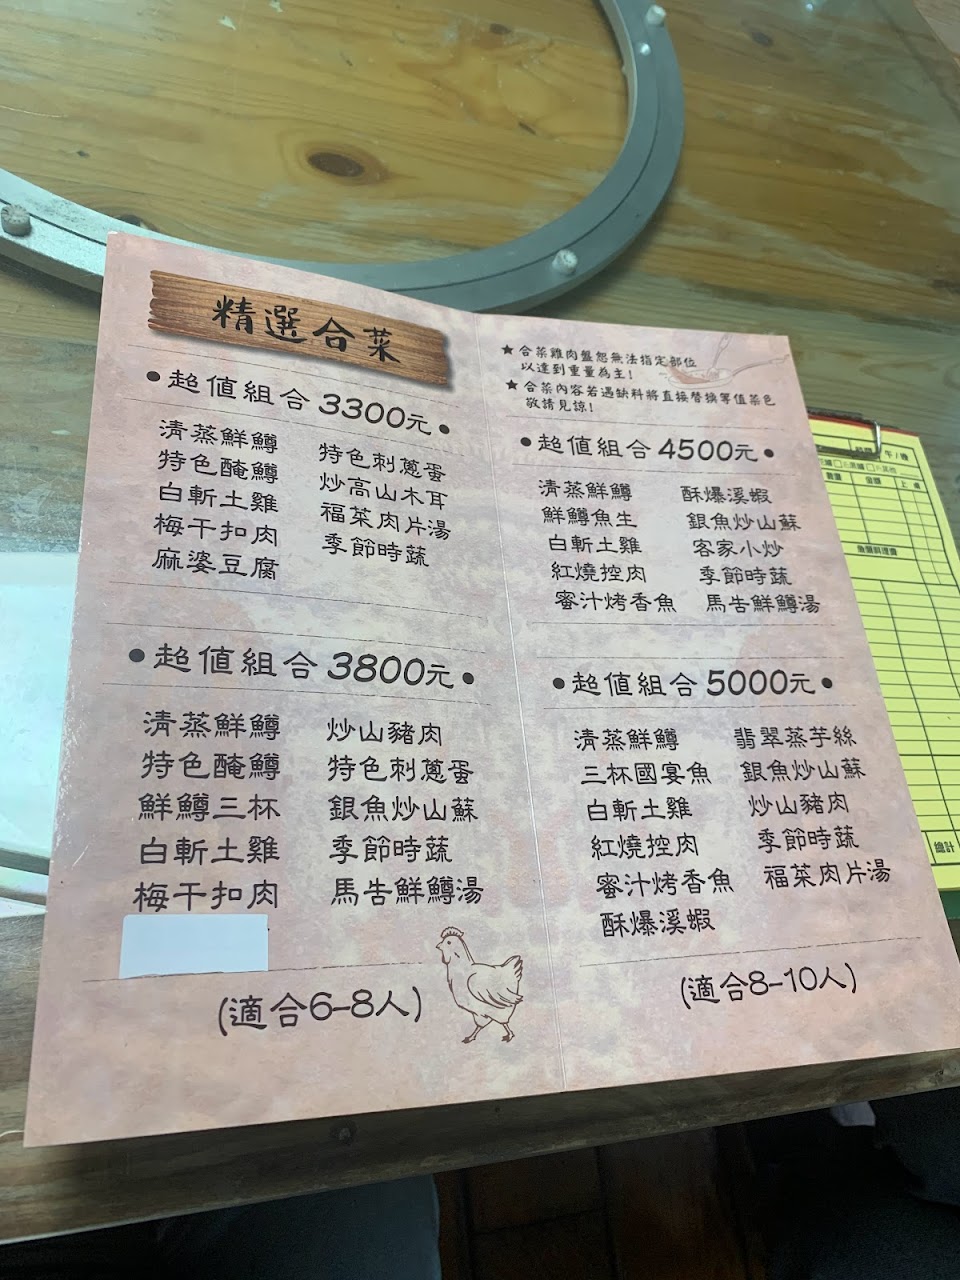 精選合菜
•超值組合3300元•
清蒸鮮鱒
特色醃鱒
白斬土雞
梅干扣肉
麻婆豆腐
特色刺蔥蛋
炒高山木耳
福菜肉片湯
季節時蔬
•超值組合3800元•
清蒸鮮鱒
特色醃鱒
鮮鱒三杯
白斬土雞
梅干扣肉
炒山豬肉
特色刺蔥蛋
銀魚炒山蘇
季節時蔬
馬告鮮鱒湯
(適合6-8人)
★合菜雞肉盤恕無法指定部位
以達到重量為主!
★合菜內容若遇缺料將直接替換等值菜色
敬請見諒!
•超值組合4500元•
清蒸鮮鱒
鮮鱒魚生
白斬土雞
紅燒控肉
蜜汁烤香魚
酥爆溪蝦
銀魚炒山蘇
客家小炒
季節時蔬
馬告鮮鱒湯
•超值組合5000元•
清蒸鮮鱒
三杯國宴魚
白斬土雞
紅燒控肉
蜜汁烤香魚
酥爆溪蝦
翡翠蒸芋絲
銀魚炒山蘇
炒山豬肉
季節時蔬
福菜肉片湯
(適合8-10人)
午/晚
其他
上桌
總計